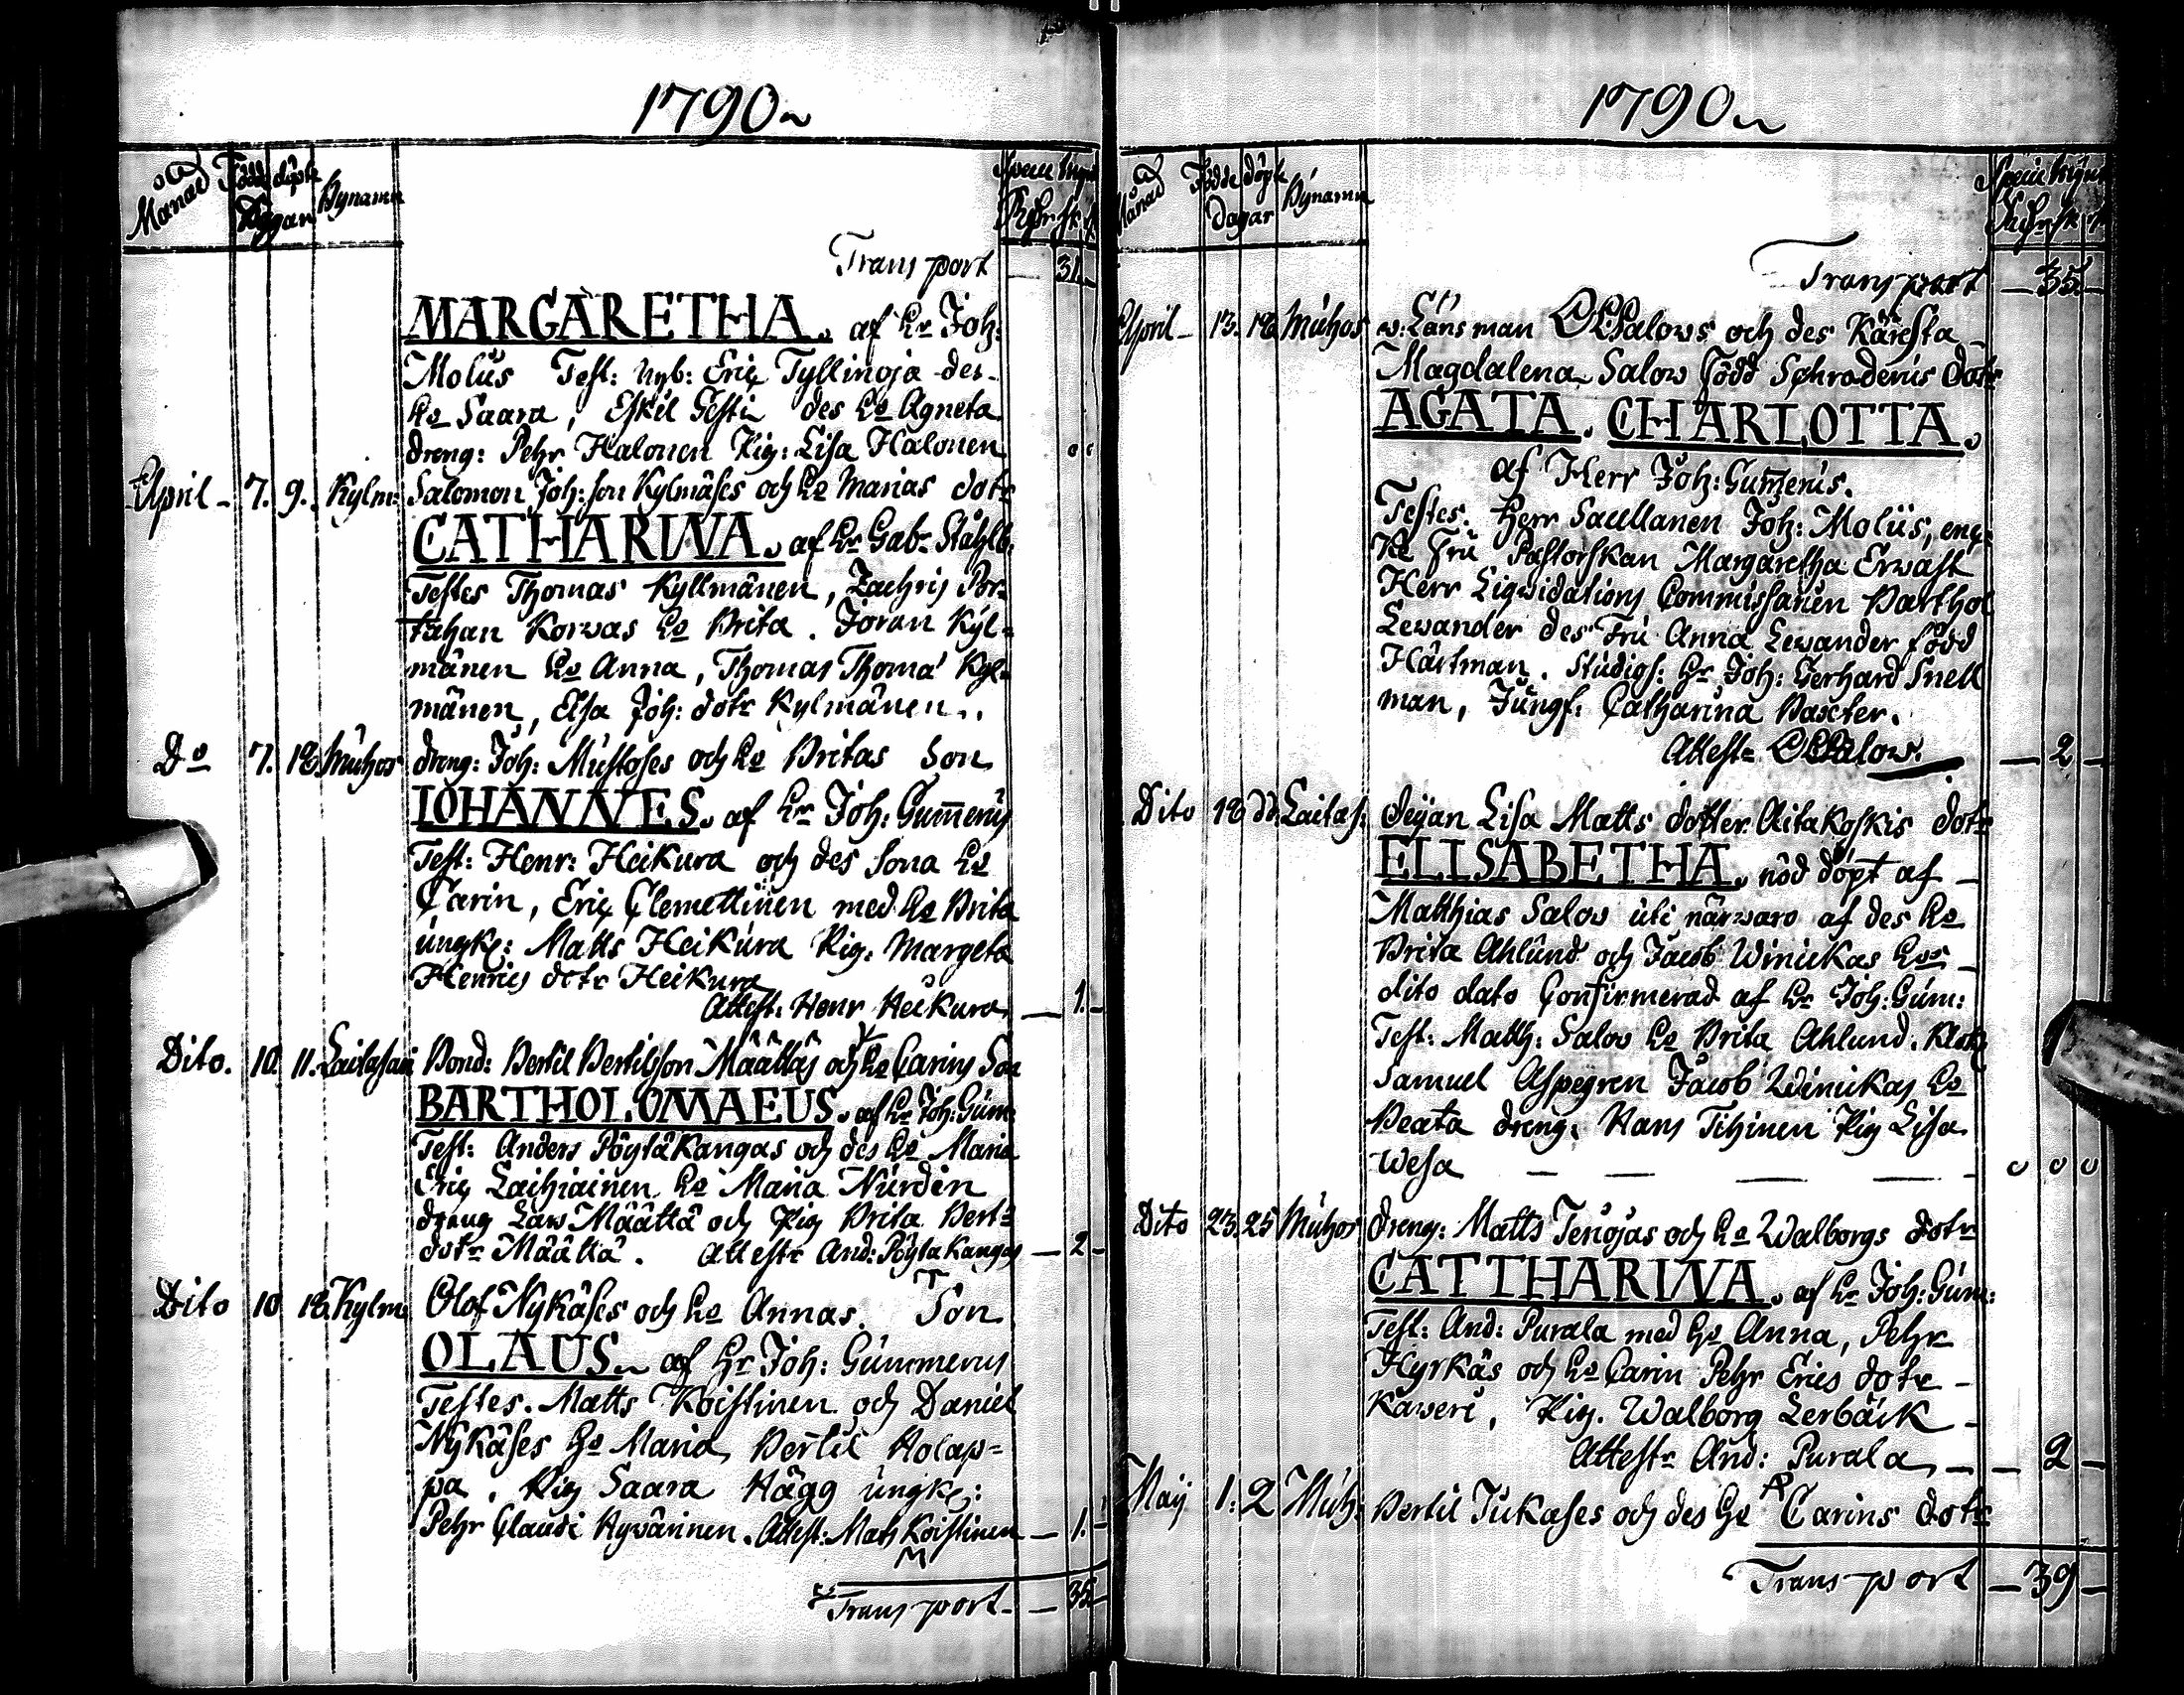 1790
Månad Födde döpte Bynamn
Dagar
Transport 31.
MARGARETHA. af Hr Joh:
Molüs Test: nyb: Eric Tyllinoja des
ho Saara, Eskil Gesti des ho Agneta
dreng: Pehr Halonen Pig: Lisa Halonen
April 7. 9. Kylm: Salomon Joh:son Kylmäses och ho Marias dotr
CATHARINA. af Hr Gabr Ståhlb.
Testes Thomas Kyllmänen, Zachris Por-
tahan Korvas ho Brita. Joran Kyl-
mänen ho Anna, Thomas Thomæ Kyl-
mänen, Elsa Joh: dotr Kylmänen.
Do 7. 18. Muhos dreng: Joh: Mustoses och ho Britas Son
IOHANNES. af Hr Joh: Gum̅erus
Test: Henr: Heikura och des sona ho
Carin, Eric Clemettinen med ho Brita
ungk: Matts Heikura Pig. Margeta
Henrics dotr Heikura
Attest: Henr Heikura 1.
Dito. 10. 11. Laitasari Bond: Bertil Bertilsson Määttäs och ho Carins Son
BARTHOLOMAEUS. af Hr Joh: Gum:
Test: Anders Pöytäkangas och des ho Maria
Eric Laihiainen ho Maria Nurdin
dreng Lars Määttä och Pig Brita Bert:
dotr Määttä. Attestr And: Pöytäkangas 2
Dito 10 18. Kylm: Olof Nykäses och ho Annas. Son
OLAUS. af Hr Joh: Gummerus
Testes. Matts Koistinen och Daniel
Nykäses ho Maria, Bertil Holap-
pa. Pig Saara Hägg ungk:
Pehr Claudi Hyvärinen. Attest: Mats Koistinen 1.
Transport 35
1790
Månad Födde döpte Bynamn
Dagar
Transport 35.
April 13. 18 Muhos w: Länsman Salows och des Käresta
Magdalena Salow född Schroderus dotr
AGATA. CHARLOTTA.
af Herr Joh: Gum̅erus.
Testes. Herr Sacellanen Joh: Molüs, enc-
ke Fru Pastorskan Margaretha Erwast
Herr Liqvidations Commissarien Barthol
Lewander des Fru Anna Lewander född
Hårtman. Studios: Hr Joh: Gerhard Snell
man, Jungf. Catharina Baxter.
Attestr Salow. 2
Dito 18 do Laitas: Pejan Lisa Matts dotter Aitakoskis dotr
ELISABETHA. nöd döpt af
Matthias Salov uti närwaro af des ho
Brita Ahlund och Jacob Winickas hos
dito dato Confirmerad af Hr Joh: Gum:
Test: Matth: Salov ho Brita Ahlund. Klok
Samuel Aspegren Jacob Winickas ho
Beata dreng: Hans Tihinen Pig Lisa
Wesa 0 0 0
Dito 23. 25 Muhos dreng: Matts Tenojas och ho Walborgs dotr
CATTHARINA. af Hr Joh: Gum:
Test: And: Purala med ho Anna, Pehr
Hyrkäs och ho Carin Pehr Erics dotr
Kaweri, Pig. Walborg Lerbäck
Attestr And: Purala 2
Maij 1. 2 Muh: Bertil Jukases och des ho Carins dotr
Transport 39